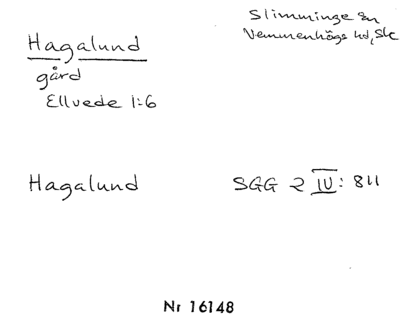 Hagalund
gård
Ellvede 1:6
Slimminge sn
Vemmenhögs hd, Sk
Hagalund
SGG 2 IV: 811
Nr 16148